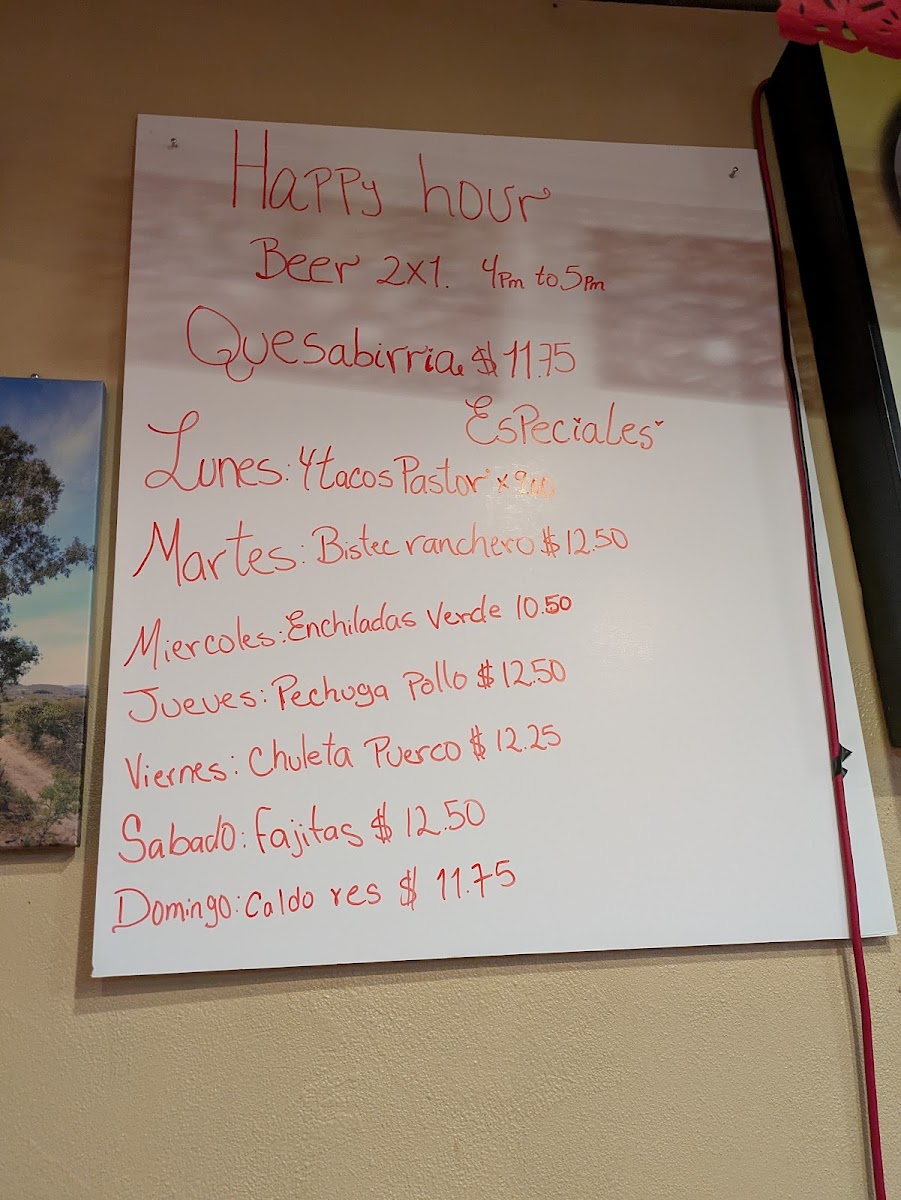 Happy hour
Beer 2x1. 4Pm to 5Pm
Quesabirria $11.75
EsPeciales
Lunes: 4 tacos Pastor x
Martes: Bistec ranchero $12.50
Miercoles: Enchiladas Verde 10.50
Jueves: Pechuga Pollo $12.50
Viernes: Chuleta Puerco $12.25
Sabado: Fajitas $12.50
Domingo: Caldo res $ 11.75